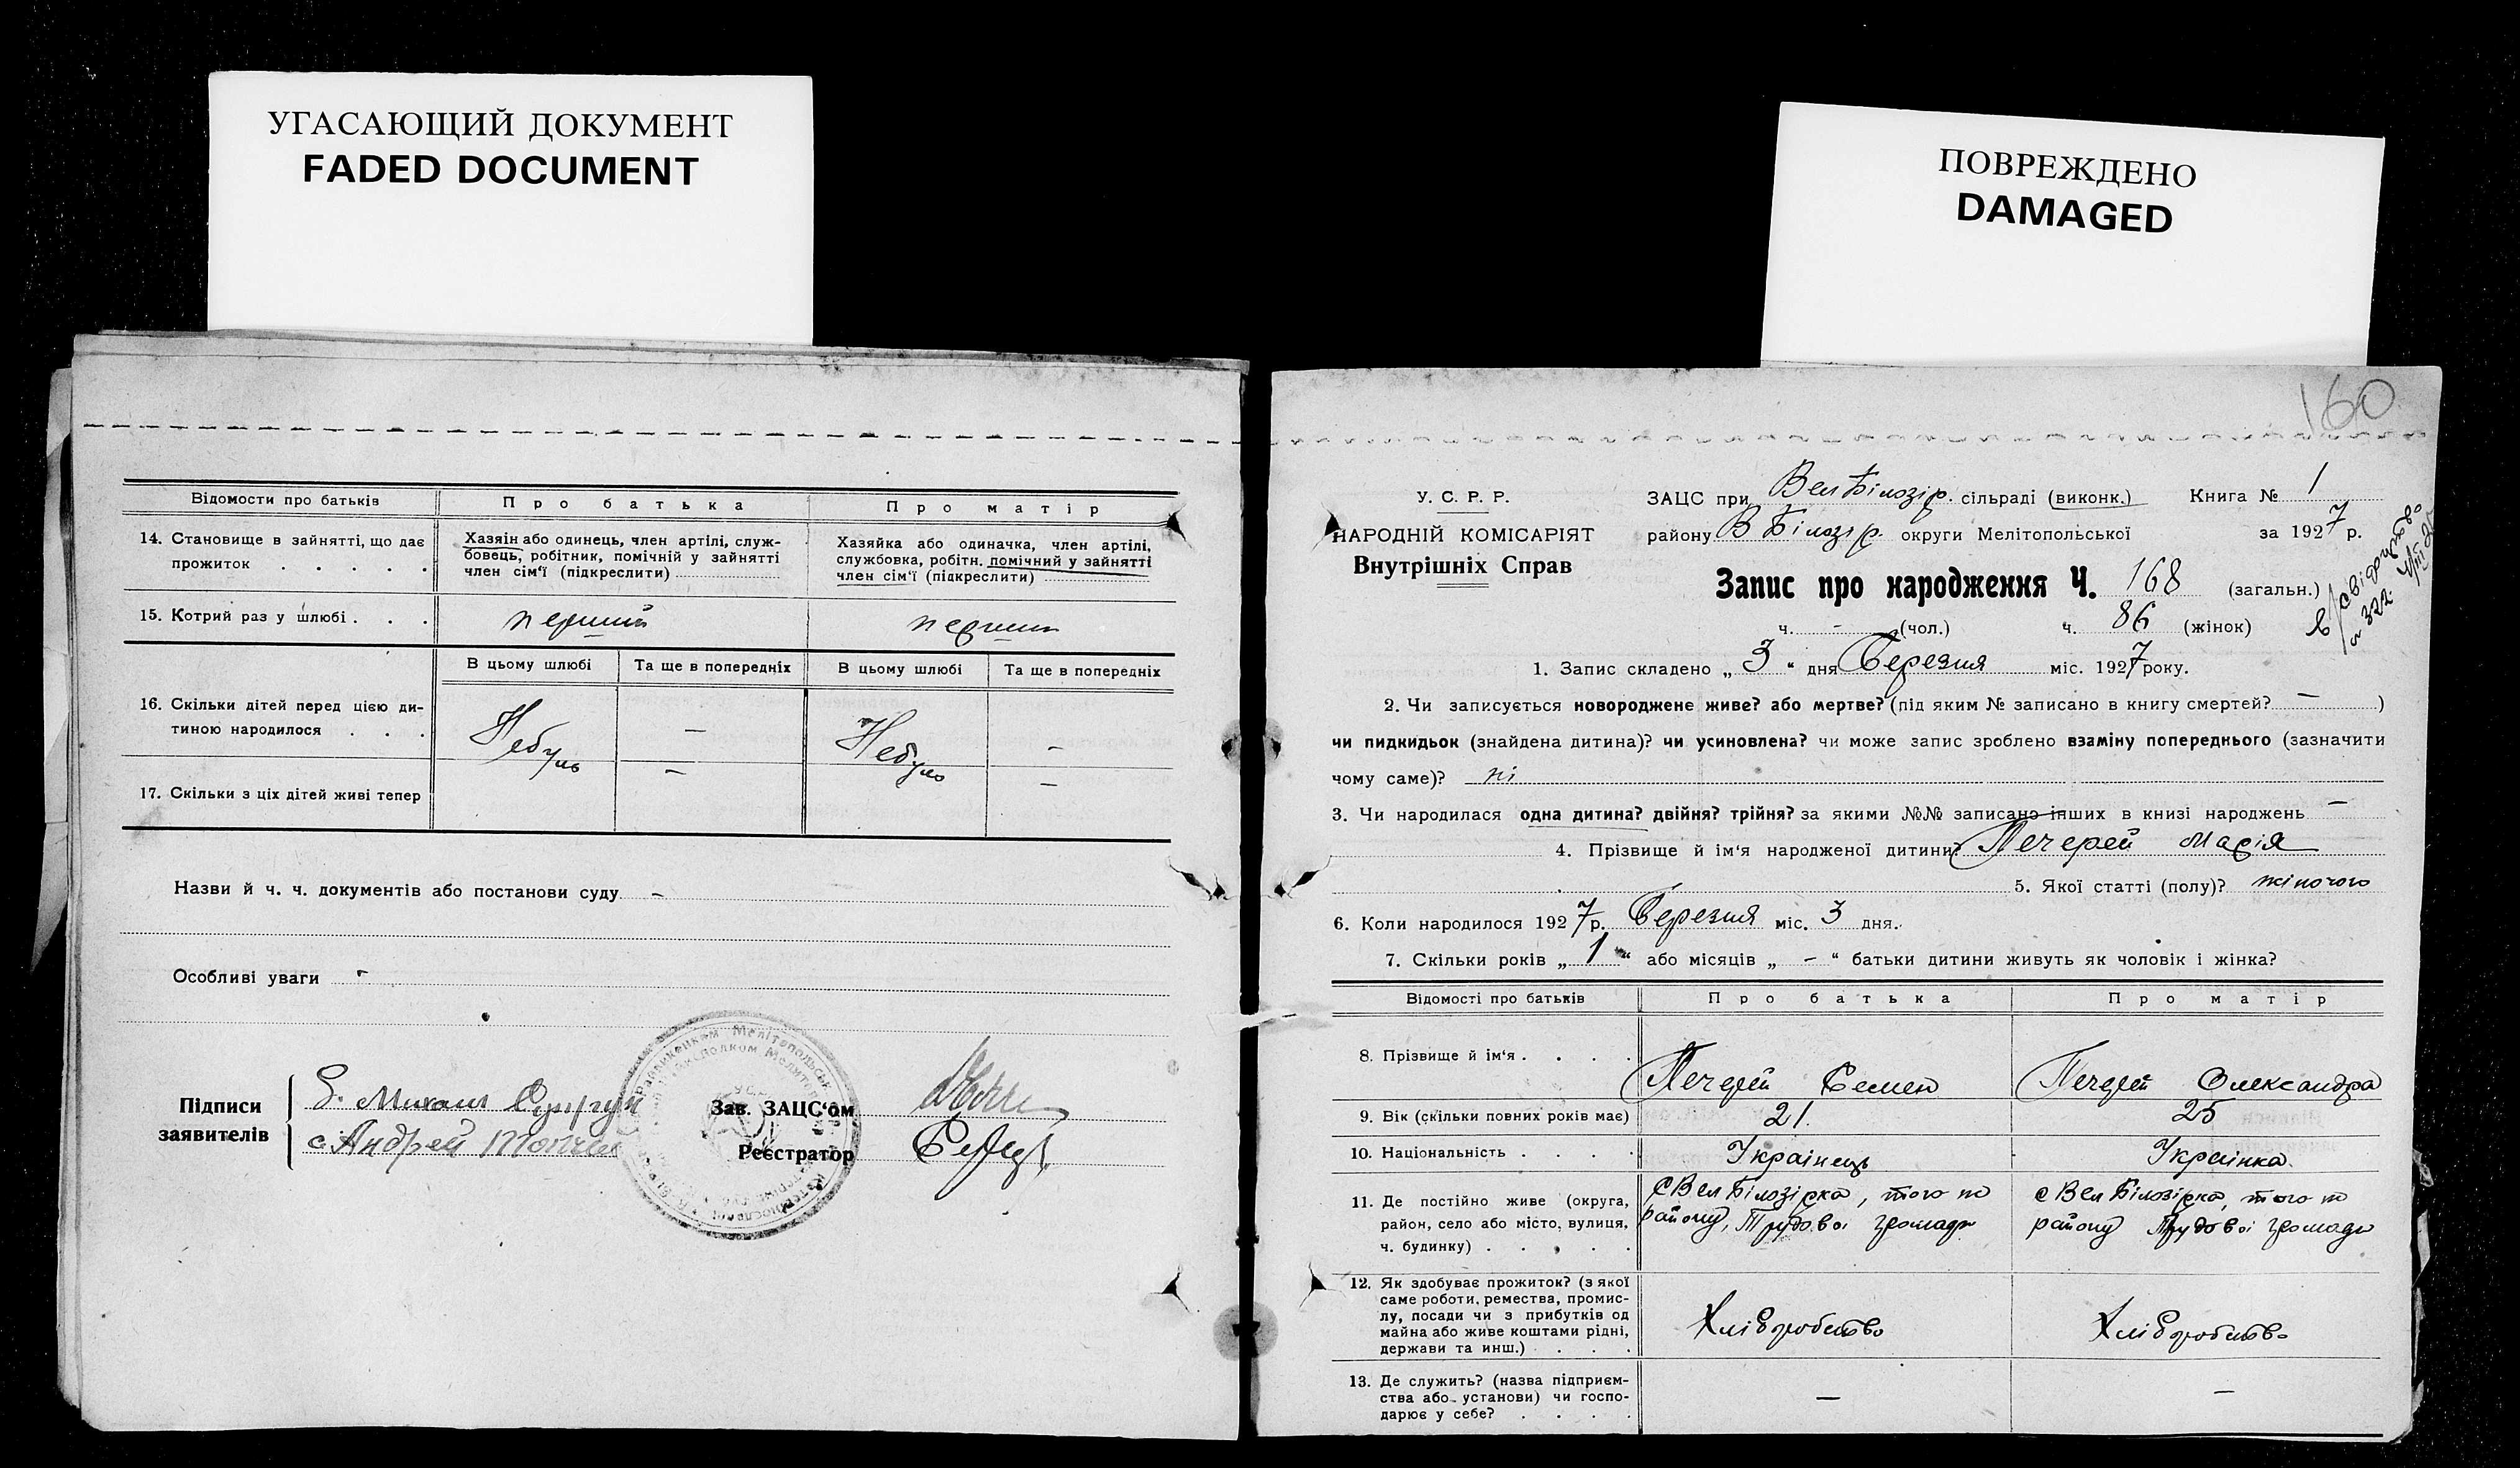 УГАСАЮЩИЙ ДОКУМЕНТ
FADED DOCUMENT
ПОВРЕЖДЕНО
DAMAGED
Відомости про батьків Про батька Про матір
14. Становище в зайнятті, що дає прожиток . . . . .
Хазяін або одинець, член артілі, служ-
бовець, робітник, помічній у зайнятті
член сім'ї (підкреслити)
Хазяйка або одиначка, член артілі,
службовка, робітн. помічний у зайнятті
член сім'ї (підкреслити)
15. Котрий раз у шлюбі . . . перший першии
В цьому шлюбі Та ще в попередніх В цьому шлюбі Та ще в попередніх
16. Скільки дітей перед цією ди-
тиною народилося . . . Небуло - Небуло -
17. Скільки з ціх дітей живі тепер - -
Назви й ч. ч. документів або постанови суду -
Особливі уваги -
Підписи
заявителів
Михаил
Андрей
Зав. ЗАЦС'ом
Реєстратор
160
У. С. Р. Р.
НАРОДНІЙ КОМІСАРІЯТ
Внутрішніх Справ
ЗАЦС при Вел Білозір. сільраді (виконк.) Книга № 1
району В Білозір. округи Мелітопольської за 1927 р.
Запис про народження Ч. 168 (загальн.)
ч. - (чол.) ч. 86 (жінок)
1. Запис складено „ 3 “ дня Березня міс. 1927 року.
2. Чи записується новороджене живе? або мертве? (під яким № записано в книгу смертей? — )
чи пидкидьок (знайдена дитина)? чи усиновлена? чи може запис зроблено взаміну попереднього (зазначити
чому саме)? ні
3. Чи народилася одна дитина? двійня? трійня? за якими №№ записано інших в книзі народжень —
4. Прізвище й ім'я народженої дитини? Печерей Марія
5. Якої статті (полу)? жіночого
6. Коли народилося 1927 р. Березня міс. 3 дня.
7. Скільки років „ 1 “ або місяців „ - “ батьки дитини живуть як чоловік і жінка?
Відомості про батьків Про батька Про матір
8. Прізвище й ім'я . . . . Печерей Семен Печерей Олександра
9. Вік (скільки повних років має) 21. 25
10. Національність . . . . Українець Українка
11. Де постійно живе (округа,
район, село або місто, вулиця,
ч. будинку) . . . . .
с Вел Білозірка, того ж
району, Трудової громади
с Вел Білозірка, того ж
району Трудової громади
12. Як здобуває прожиток? (з якої
саме роботи, ремества, промис-
лу, посади чи з прибутків од
майна або живе коштами рідні,
держави та инш.) . . .
Хліборобство Хліборобство
13. Де служить? (назва підприєм-
ства або установи) чи госпо-
дарює у себе? . . . . — —